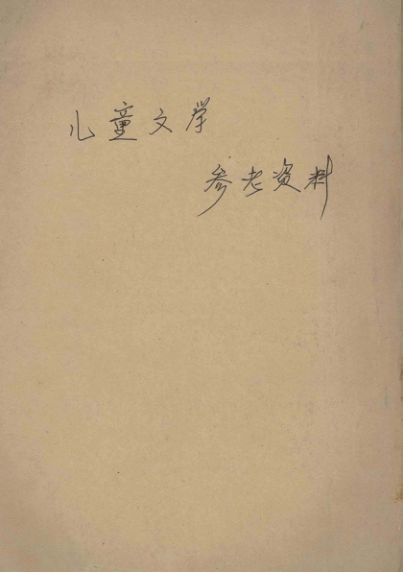 儿童文学
参考资料